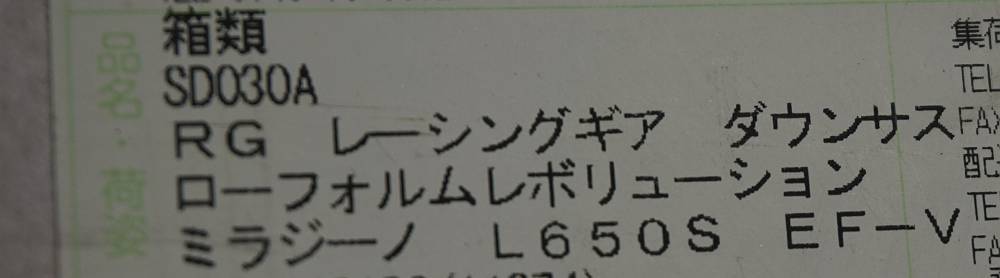 箱類
SD030A
RG レーシングギア ダウンサス
ローフォルムレボリューション
ミラジーノ L650S EF−V
品名・
集荷
TEL
FAX
配
TE
FA